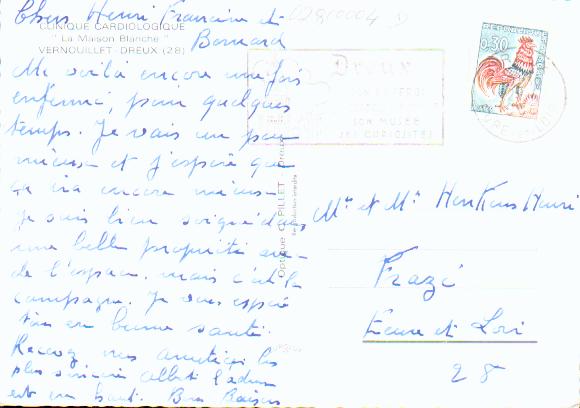 Chers Henri Francine et
CLINIQUE CARDIOLOGIQUE
" La Maison Blanche "
VERNOUILLET-DREUX (28)
Bernard
Me voilà encore une fois
enfermé, pour quelques
temps. Je vais un peu
mieux et j'espère que
ça ira encore mieux
je suis bien soigné dans
une belle propriété avec
de l'espace, mais c'est la
campagne. Je vous espère
tous en bonne santé.
Recevez mes amitiés les
plus sincères Albert l'adresse
est en haut. Bons Baisers
02810004
Dreux
SON MUSÉE
REPUBLIQUE FRANÇAISE
0,30
EURE-ET-LOIR
Dreux
Reproduction interdite
Mr et Me Henri
Frazé
Eure et Loir
28